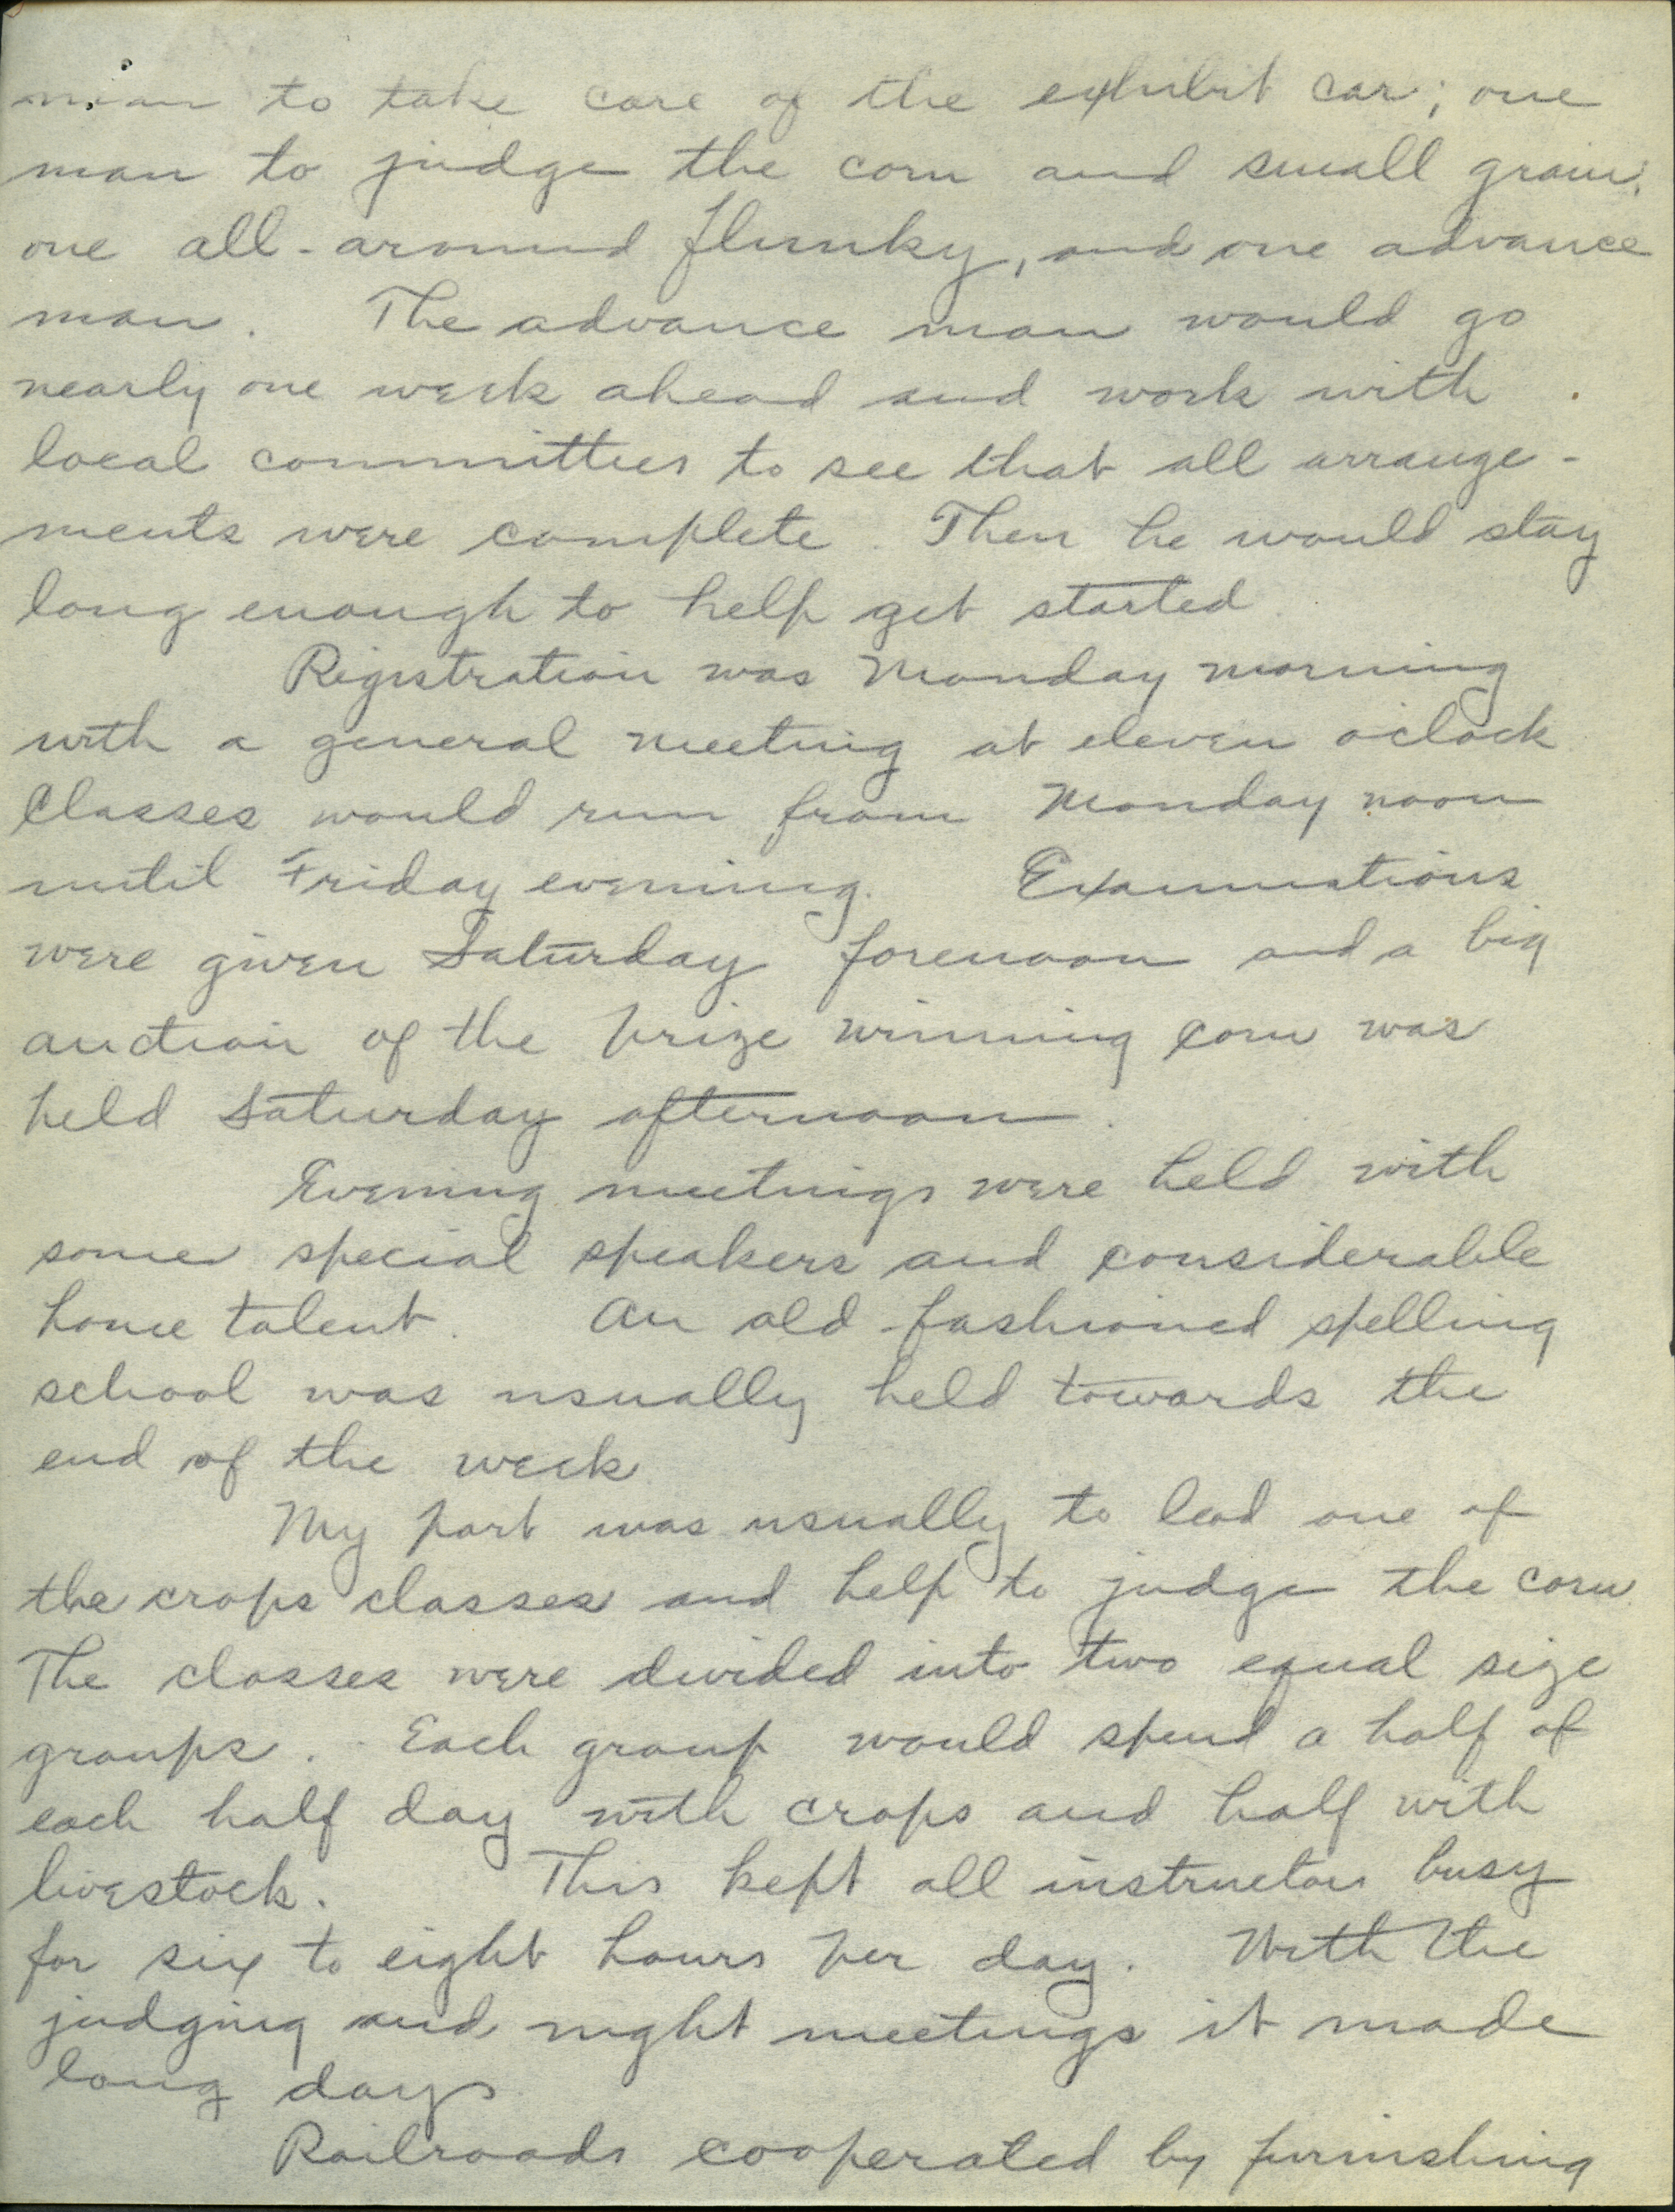 man to take care of the exhibit car; one
man to judge the corn and small grain;
one all-around flunky, and one advance
man. The advance man would go
nearly one week ahead and work with
local committees to see that all arrange-
ments were complete. Then he would stay
long enough to help get started.
Registration was Monday morning
with a general meeting at eleven o'clock.
Classes would run from Monday noon
until Friday evening. Examinations
were given Saturday forenoon and a big
auction of the prize winning corn was
held Saturday afternoon.
Evening meetings were held with
some special speakers and considerable
home talent. An old-fashioned spelling
school was usually held towards the
end of the week.
My part was usually to lead one of
the crops classes and help to judge the corn.
The classes were divided into two equal size
groups. Each group would spend a half of
each half day with crops and half with
livestock. This kept all instructors busy
for six to eight hours per day. With the
judging and night meetings it made
long days.
Railroads cooperated by furnishing